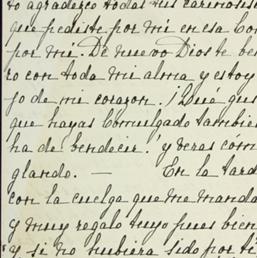 to agradezco todas tus cariñosas
que pediste por mí en esa Com
por mí. De nuevo Dios te ben
ro con toda mi alma y estoy
jo de mi corazon. ¡Qué gus
que hayas Comulgado tambie
ha de bendecir! y verás cómo
glando. — En la tard
con la cuelga que me manda
y muy regalo tuyo pues bien
y si no hubiera sido por ti